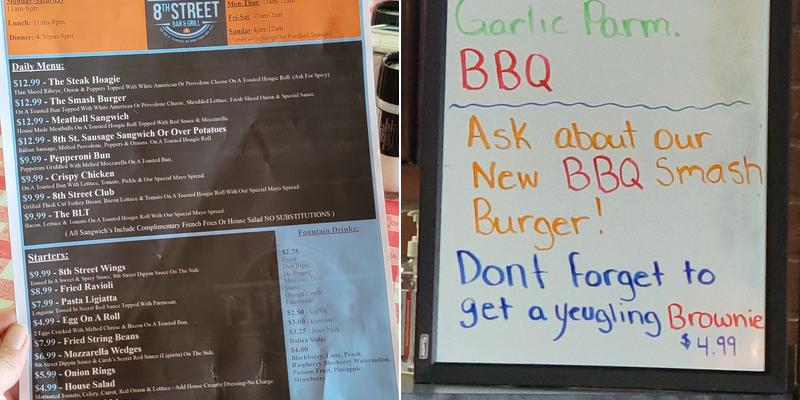 Monday-Saturday
11am-8pm
Lunch: 11am-8pm
Dinner: 4:30pm-8pm
8TH STREET
BAR & GRILL
Mon-Thur: 11am-12am
Fri-Sat: 11am-2am
Sunday 4pm-12am
(Times will Change for Football Season)
Daily Menu:
$12.99 - The Steak Hoagie
Thin Sliced Ribeye, Onion & Peppers Topped With White American Or Provolone Cheese On A Toasted Hoagie Roll (Ask For Spicy)
$12.99 - The Smash Burger
On A Toasted Bun Topped With White American Or Provolone Cheese, Shredded Lettuce, Fresh Sliced Onion & Special Sauce.
$12.99 - Meatball Sangwich
House Made Meatballs On A Toasted Hoagie Roll Topped With Red Sauce & Mozzarella.
$12.99 - 8th St. Sausage Sangwich Or Over Potatoes
Italian Sausage, Melted Provolone, Peppers & Onions, On A Toasted Hoagie Roll.
$9.99 - Pepperoni Bun
Pepperoni Griddled With Melted Mozzarella On A Toasted Bun.
$9.99 - Crispy Chicken
On A Toasted Bun With Lettuce, Tomato, Pickle & Our Special Mayo Spread.
$9.99 - 8th Street Club
Grilled Thick Cut Turkey Breast, Bacon Lettuce & Tomato On A Toasted Hoagie Roll With Our Special Mayo Spread.
$9.99 - The BLT
Bacon, Lettuce & Tomato On A Toasted Hoagie Roll With Our Special Mayo Spread
( All Sangwich's Include Complimentary French Fries Or House Salad NO SUBSTITUTIONS )
Starters:
$9.99 - 8th Street Wings
Tossed In A Sweet & Spicy Sauce, 8th Street Dippin Sauce On The Side.
$8.99 - Fried Ravioli
$7.99 - Pasta Ligiatta
Linguine Tossed In Secret Red Sauce Topped With Parmesan.
$4.99 - Egg On A Roll
2 Eggs Cracked With Melted Cheese & Bacon On A Toasted Bun.
$7.99 - Fried String Beans
$6.99 - Mozzarella Wedges
8th Street Dippin Sauce & Carda's Secret Red Sauce (Ligiatta) On The Side.
$5.99 - Onion Rings
$4.99 - House Salad
Marinated Tomato, Celery, Carrot, Red Onion & Lettuce - Add House Creamy Dressing-No Charge
Fountain Drinks:
$2.75
Pepsi
Diet Pepsi
Dr. Pepper
Mountain Dew
Starry
Lemonade
$2.50 - Coffee
$3.00 - Espresso
$3.25 -
Italian Sodas
$4.00
Blackberry, Lime, Peach,
Raspberry Blueberry Watermelon,
Passion Fruit, Pineapple,
Strawberry
Garlic Parm.
BBQ
Ask about our
New BBQ Smash
Burger!
Dont forget to
get a yeugling Brownie
$4.99